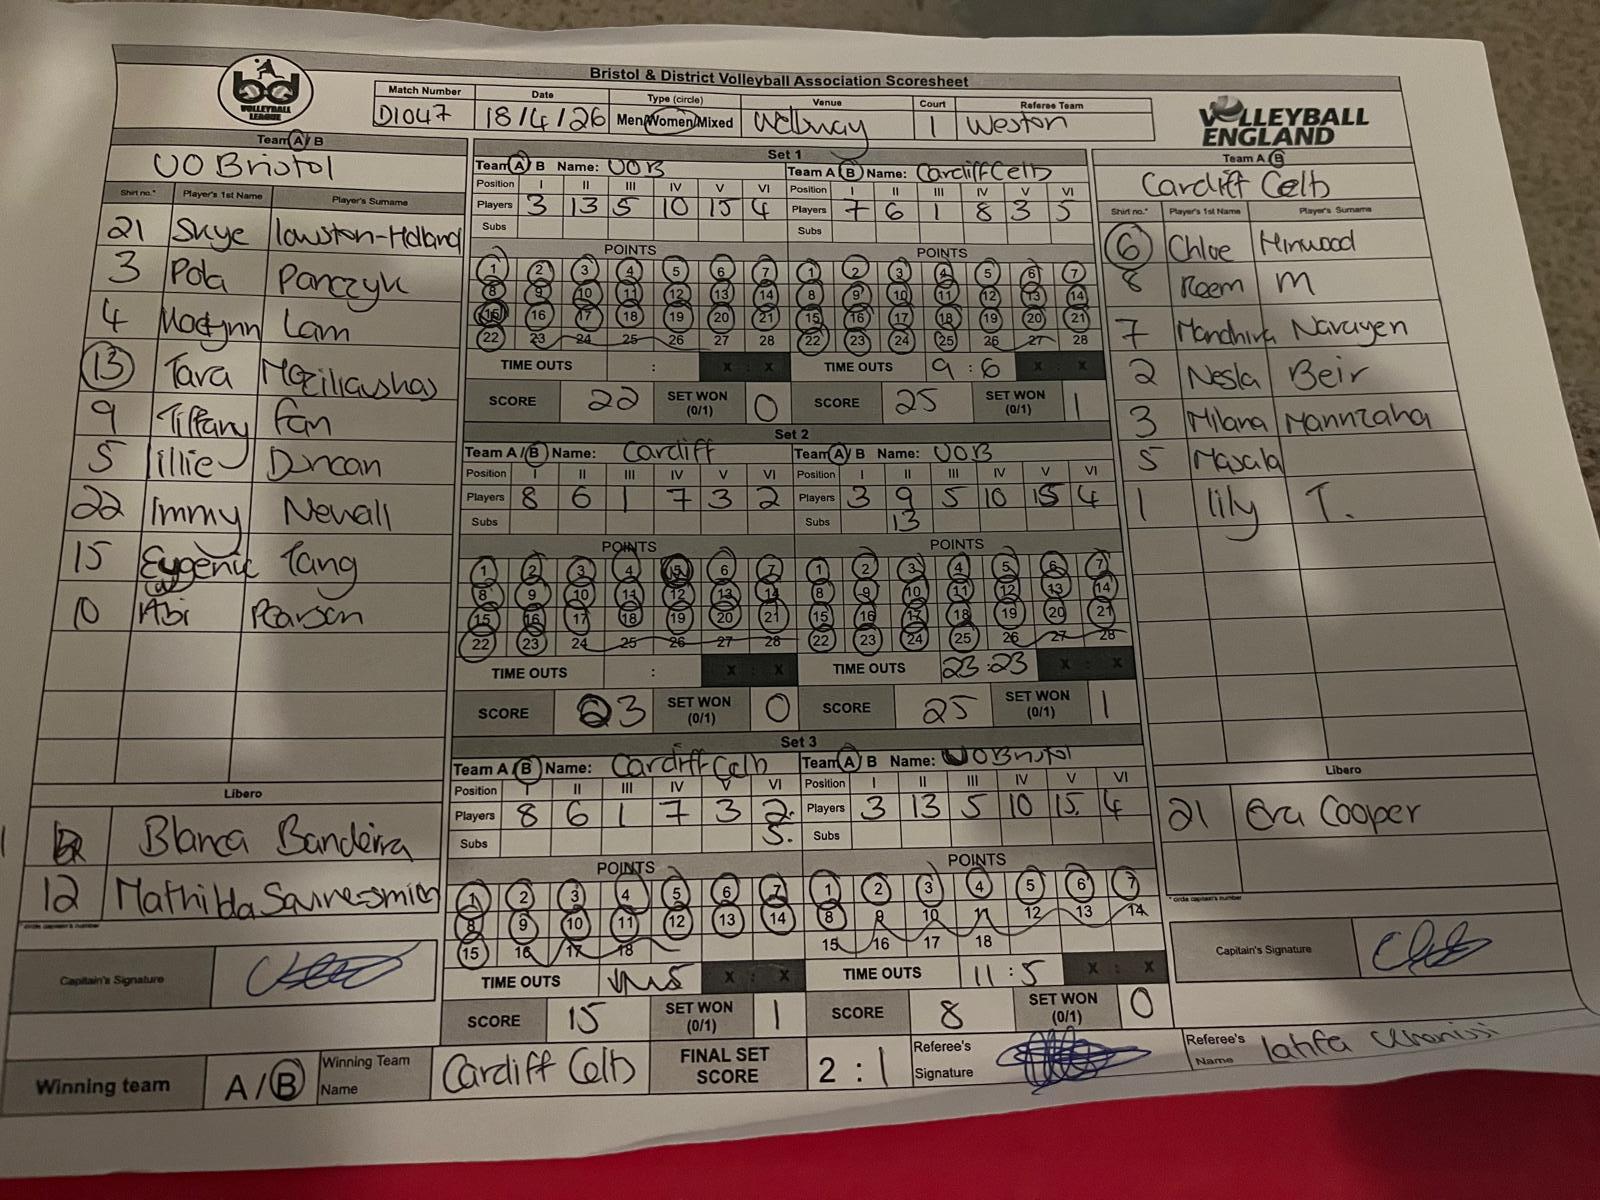 Bristol & District Volleyball Association Scoresheet
VOLLEYBALL LEAGUE
Match Number Date Type (circle) Venue Court Referee Team
D1047 18/4/26 Men/Women/Mixed 1 Weston
VOLLEYBALL ENGLAND
Team A/B
UO Bristol
Shirt no.* Player's 1st Name Player's Surname
21 Skye
3 Pola Panczyk
4 Lam
13 Tara
9 Tiffany Fan
5 lillie Duncan
22 Immy Newall
15 Eugenie Tang
10 Abi Pearson
Libero
Blanca Bandeira
12 Mathilda
* circle captain's number
Capitain's Signature
Set 1
Team A B Name: UOB
Position I II III IV V VI
Players 3 13 5 10 15 4
Subs
POINTS
1 2 3 4 5 6 7
8 9 10 11 12 13 14
15 16 17 18 19 20 21
22 23 24 25 26 27 28
TIME OUTS : X : X
SCORE 22 SET WON (0/1) 0
Team A B Name: Cardiff Celts
Position I II III IV V VI
Players 7 6 1 8 3 5
Subs
POINTS
1 2 3 4 5 6 7
8 9 10 11 12 13 14
15 16 17 18 19 20 21
22 23 24 25 26 27 28
TIME OUTS 9 : 6 X : X
SCORE 25 SET WON (0/1) 1
Set 2
Team A/B Name: Cardiff
Position I II III IV V VI
Players 8 6 1 7 3 2
Subs
POINTS
1 2 3 4 5 6 7
8 9 10 11 12 13 14
15 16 17 18 19 20 21
22 23 24 25 26 27 28
TIME OUTS : X : X
SCORE 23 SET WON (0/1) 0
Team A B Name: UOB
Position I II III IV V VI
Players 3 9 5 10 15 4
Subs 13
POINTS
1 2 3 4 5 6 7
8 9 10 11 12 13 14
15 16 17 18 19 20 21
22 23 24 25 26 27 28
TIME OUTS 23:23 X : X
SCORE 25 SET WON (0/1) 1
Set 3
Team A B Name: Cardiff Celts
Position I II III IV V VI
Players 8 6 1 7 3 2.
Subs 5.
POINTS
1 2 3 4 5 6 7
8 9 10 11 12 13 14
15 16 17 18
TIME OUTS X : X
SCORE 15 SET WON (0/1) 1
Team A B Name: UOBristol
Position I II III IV V VI
Players 3 13 5 10 15. 4
Subs
POINTS
1 2 3 4 5 6 7
8 9 10 11 12 13 14
15 16 17 18
TIME OUTS 11:5 X : X
SCORE 8 SET WON (0/1) 0
Team A B
Cardiff Celts
Shirt no.* Player's 1st Name Player's Surname
6 Chloe
8 Reem M
7
2 Nesla Beir
3 Milana
5 Masala
1 lily T.
Libero
21 Cooper
* circle captain's number
Capitain's Signature
Winning team A/B Winning Team Name Cardiff Celts FINAL SET SCORE 2 : 1 Referee's Signature Referee's Name